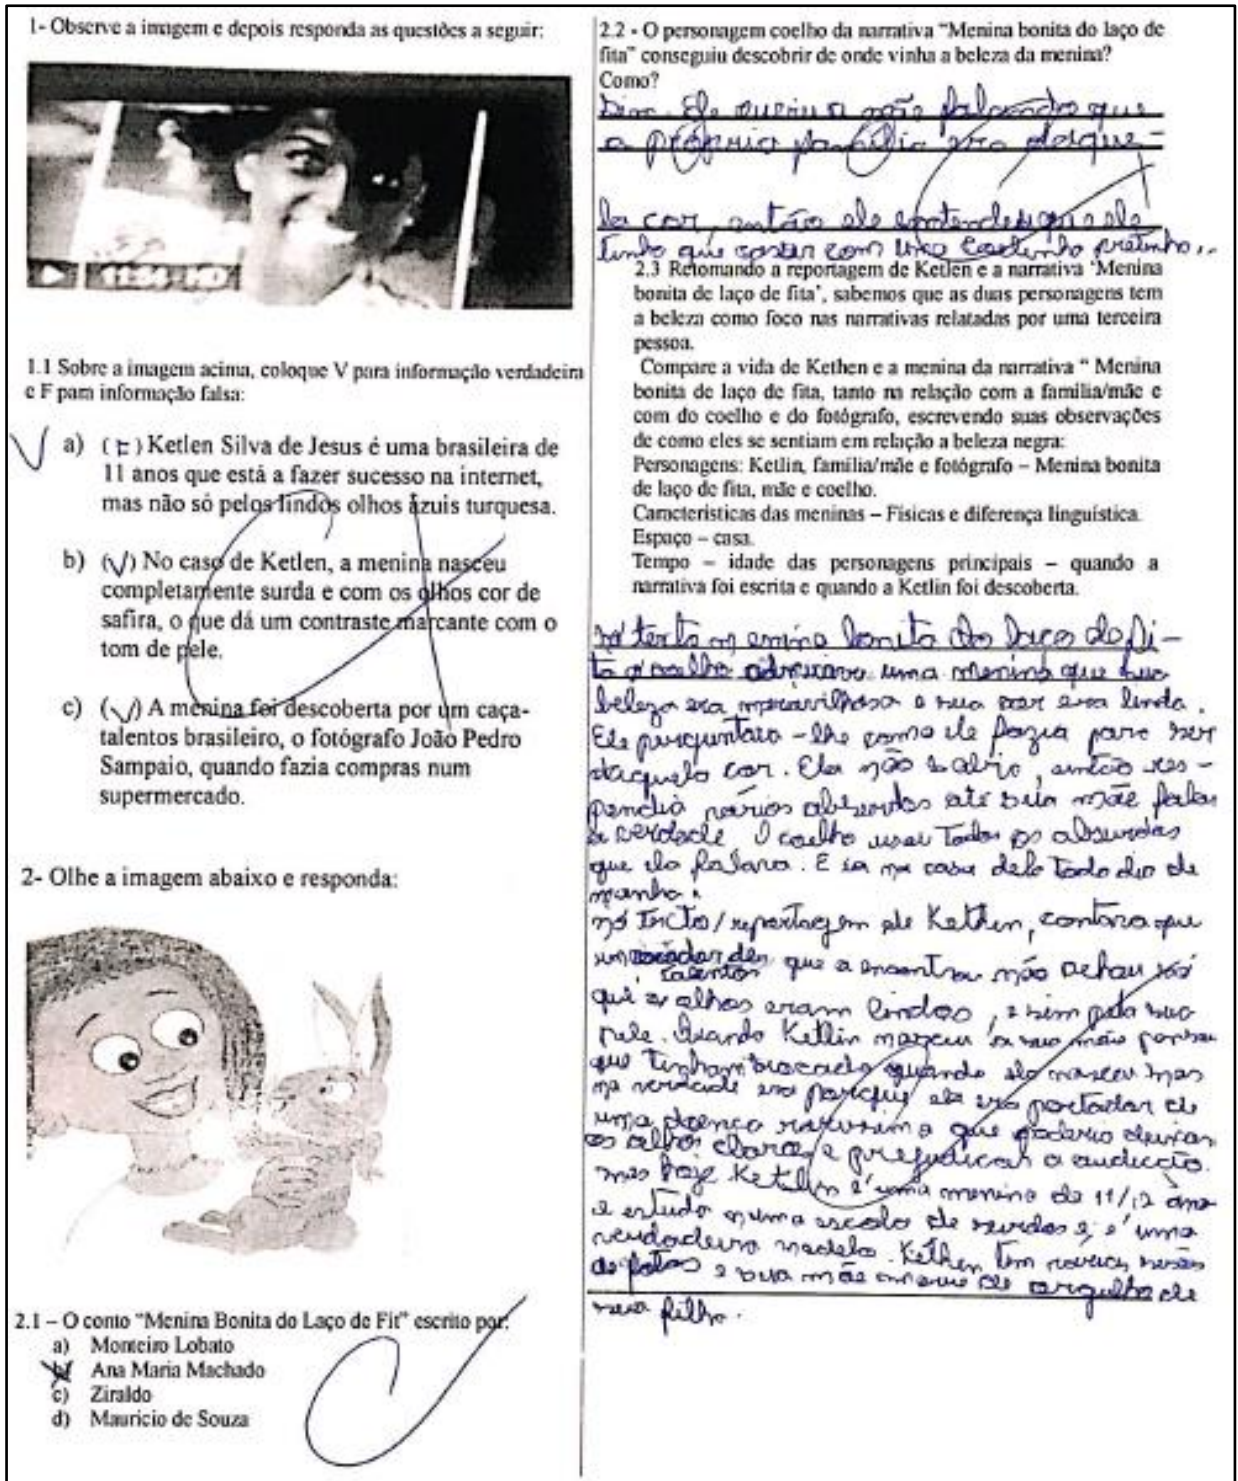 1- Observe a imagem e depois responda as questões a seguir:
11:54 HD
1.1 Sobre a imagem acima, coloque V para informação verdadeira
e F para informação falsa:
a) (F) Ketlen Silva de Jesus é uma brasileira de
11 anos que está a fazer sucesso na internet,
mas não só pelos lindos olhos azuis turquesa.
b) (V) No caso de Ketlen, a menina nasceu
completamente surda e com os olhos cor de
safira, o que dá um contraste marcante com o
tom de pele.
c) (V) A menina foi descoberta por um caça-
talentos brasileiro, o fotógrafo João Pedro
Sampaio, quando fazia compras num
supermercado.
2- Olhe a imagem abaixo e responda:
2.1 – O conto "Menina Bonita do Laço de Fit" escrito por:
a) Monteiro Lobato
b) Ana Maria Machado
c) Ziraldo
d) Mauricio de Souza
2.2 - O personagem coelho da narrativa "Menina bonita do laço de
fita" conseguiu descobrir de onde vinha a beleza da menina?
Como?
Sim. Ele ouviu a mãe falando que
a própria família era daque-
la cor, então ele entendeu que ele
tinha que casar com uma coelinha pretinha..
2.3 Retomando a reportagem de Ketlen e a narrativa 'Menina
bonita de laço de fita', sabemos que as duas personagens tem
a beleza como foco nas narrativas relatadas por uma terceira
pessoa.
Compare a vida de Kethen e a menina da narrativa " Menina
bonita de laço de fita, tanto na relação com a família/mãe e
com do coelho e do fotógrafo, escrevendo suas observações
de como eles se sentiam em relação a beleza negra:
Personagens: Ketlin, família/mãe e fotógrafo – Menina bonita
de laço de fita, mãe e coelho.
Características das meninas – Físicas e diferença linguística.
Espaço – casa.
Tempo – idade das personagens principais – quando a
narrativa foi escrita e quando a Ketlin foi descoberta.
nó texto menina bonita do laço de fi-
ta o coelho admirava uma menina que sua
beleza era maravilhosa e sua cor era linda.
Ele perguntava-lhe como ele fazia para ser
daquela cor. Ela não sabia, então res-
pondia vários absurdos até sua mãe falar
a verdade O coelho usou todos os absurdos
que ela falava. E ia na casa dela todo dia de
manhã.
nó texto/reportagem de Kethen, contava que
um de talentos que a encontrou não achou só
que os olhos eram lindos, e sim pela sua
pele. Quando Ketlin nasceu a sua mãe pensou
que tinham trocado quando ela nasceu mas
na verdade era porque ela era portador de
uma doença raríssima que poderia deixar
os olhos claros e prejudicar a audicção.
mas hoje Ketllin é uma menina de 11/12 ano
e estuda numa escola de surdos e é uma
verdadeira modelo. Kethen tem
de fotos e sua mãe de orgulho de
sua filha.